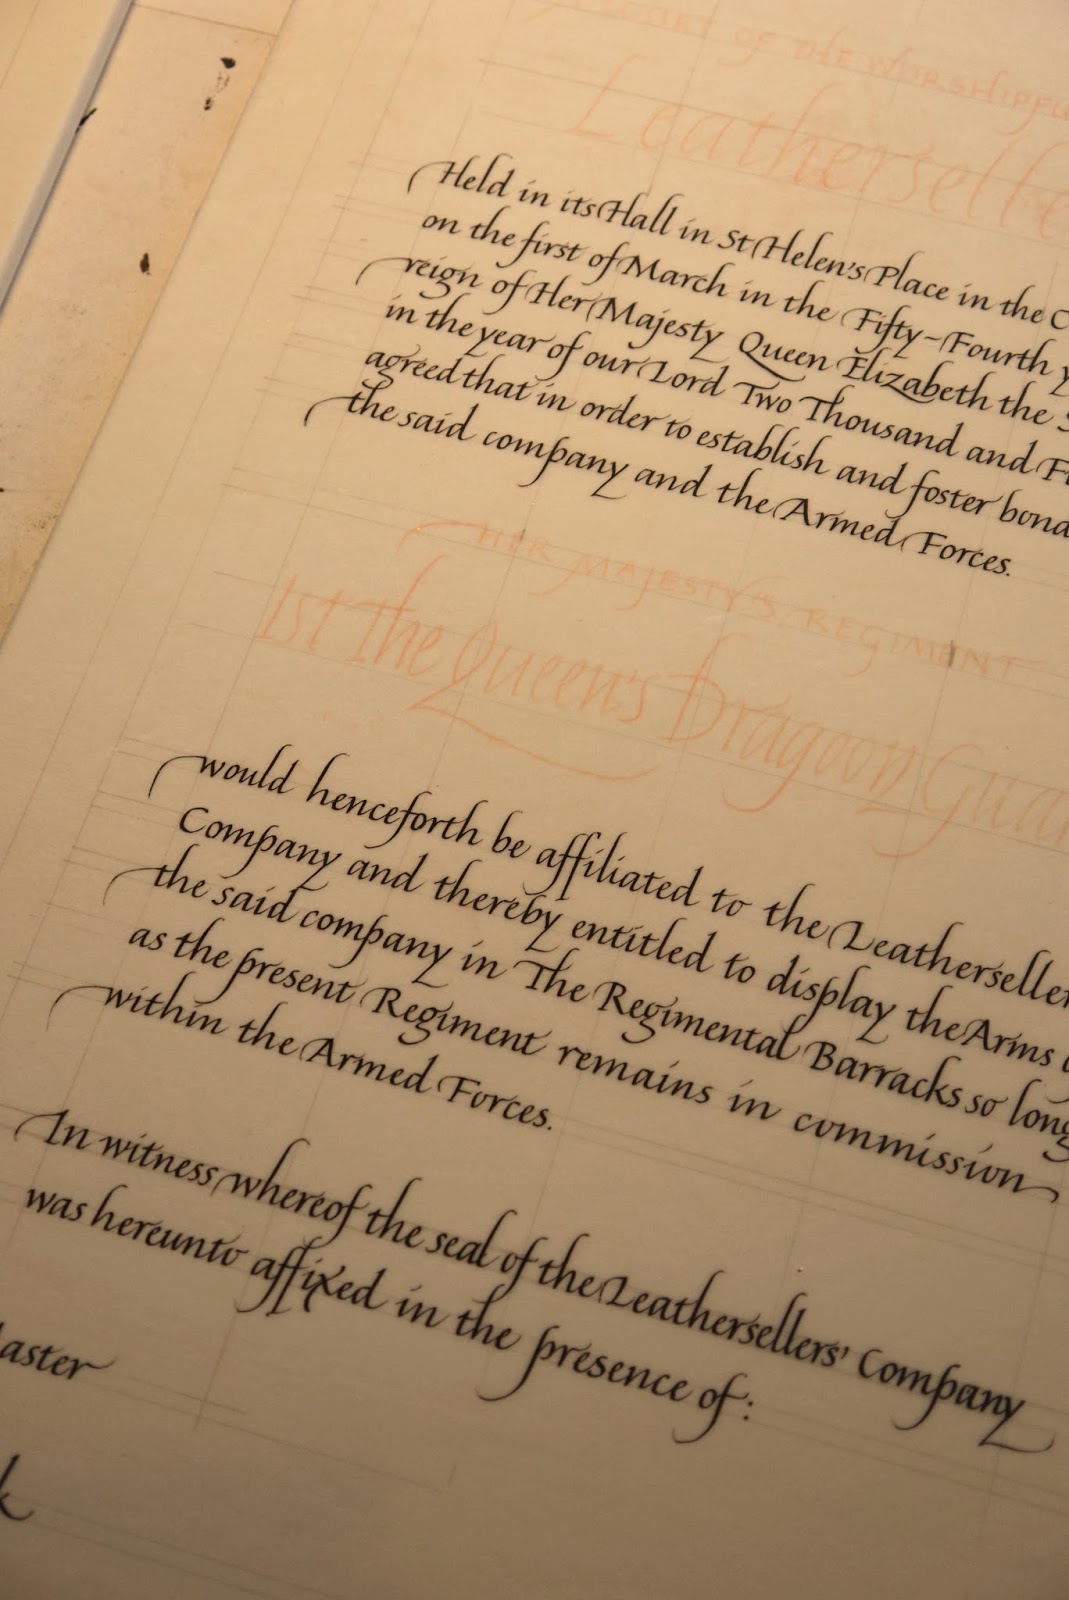 COURT OF THE WORSHIPFU
Leatherselle
Held in its Hall in St Helen's Place in the C
on the first of March in the Fifty-Fourth y
reign of Her Majesty Queen Elizabeth the S
in the year of our Lord Two Thousand and Fi
agreed that in order to establish and foster bond
the said company and the Armed Forces.
HER MAJESTY'S REGIMENT
1st The Queen's Dragoon Guar
would henceforth be affiliated to the Leatherseller
Company and thereby entitled to display the Arms o
the said company in The Regimental Barracks so long
as the present Regiment remains in commission
within the Armed Forces.
In witness whereof the seal of the Leathersellers' Company
was hereunto affixed in the presence of:
aster
k